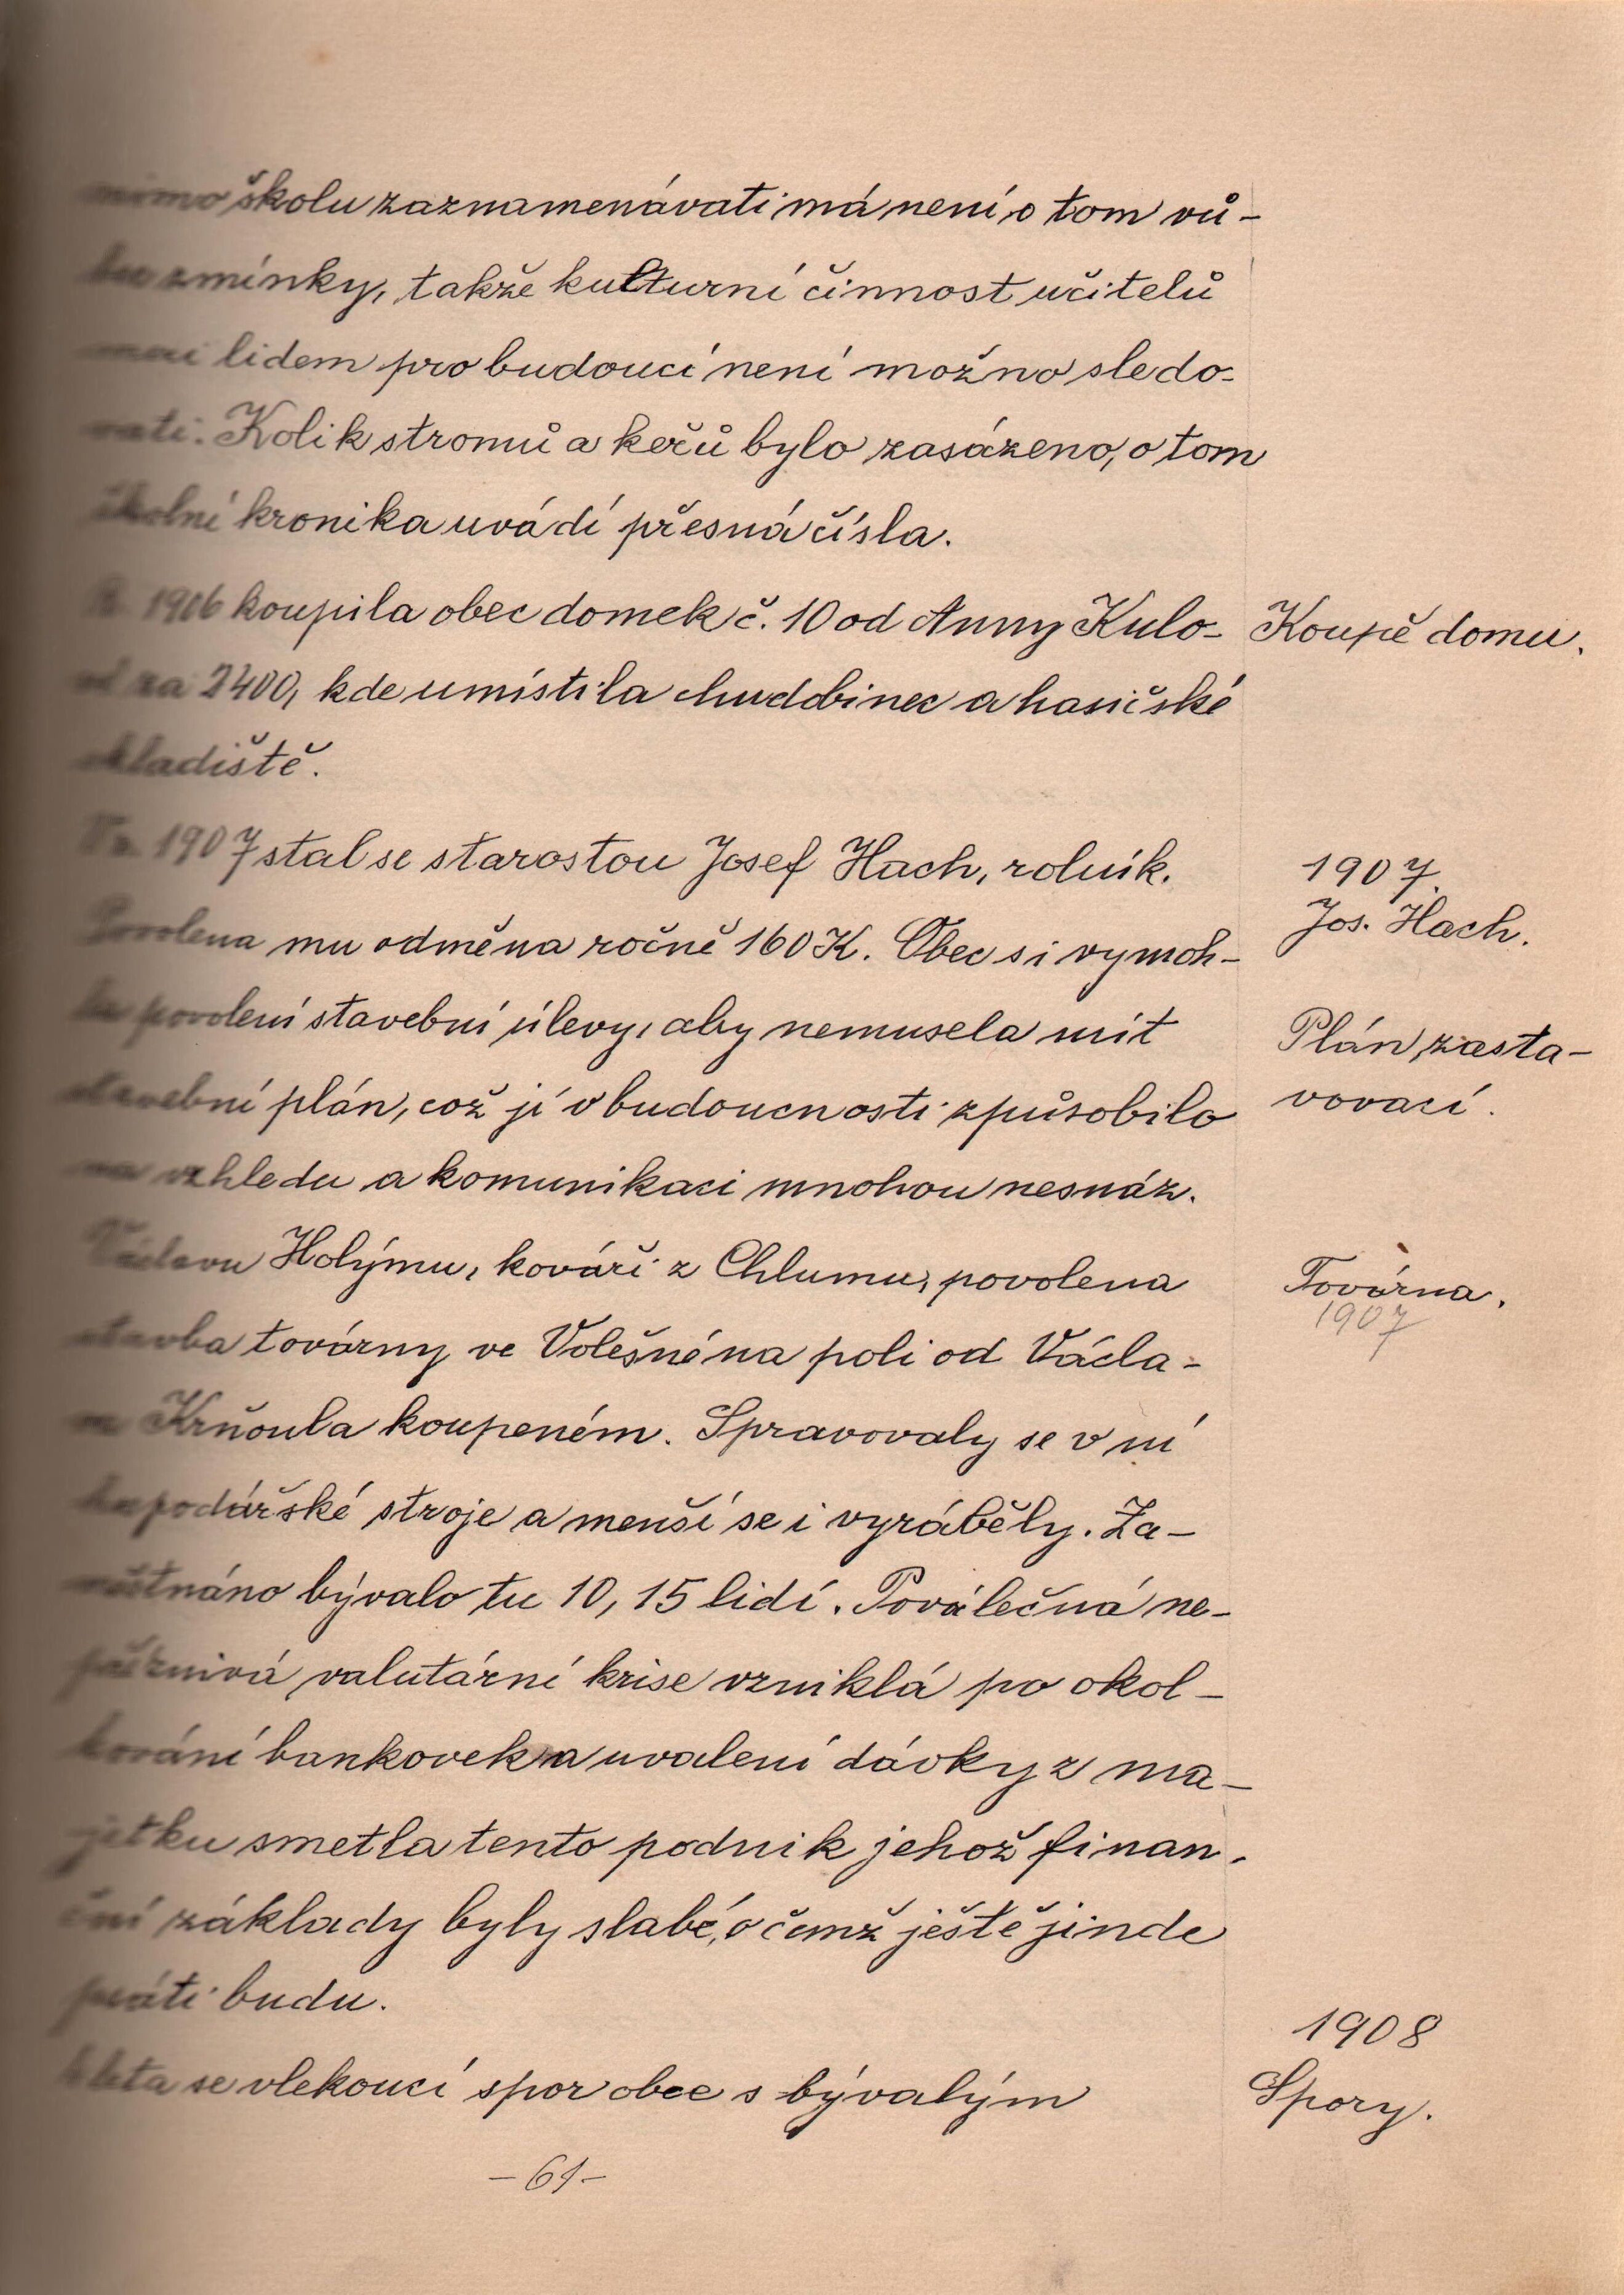 mimo školu zaznamenávati má není o tom vů-
bec zmínky, takže kulturní činnost učitelů
mezi lidem pro budoucí není možno sledo-
vati. Kolik stromů a keřů bylo zasázeno, o tom
školní kronika uvádí přesná čísla.
R. 1906 koupila obec domek č. 10 od Anny Kulo-
Koupě domu.
za 2400, kde umístila chudobinec a hasičské
skladiště.
V r. 1907 stal se starostou Josef Hach, rolník.
1907.
Jos. Hach.
Povolena mu odměna ročně 160 K. Obec si vymoh-
la povolení stavební úlevy, aby nemusela mít
Plán zasta-
stavební plán, což jí v budoucnosti způsobilo
vovací.
na vzhledu a komunikaci mnohou nesnáz.
Václavu Holýmu, kováři z Chlumu, povolena
Továrna.
1907
stavba továrny ve Volešné na poli od Václa-
va Krňoula koupeném. Spravovaly se v ní
hospodářské stroje a menší se i vyráběly. Za-
městnáno bývalo tu 10, 15 lidí. Poválečná ne-
příznivá valutární krise vzniklá po okol-
kování bankovek a uvalení dávky z ma-
jetku smetla tento podnik jehož finan-
ční základy byly slabé, o čemž ještě jinde
psáti budu.
1908
léta se vlekoucí spor obce s bývalým
Spory.
-61-